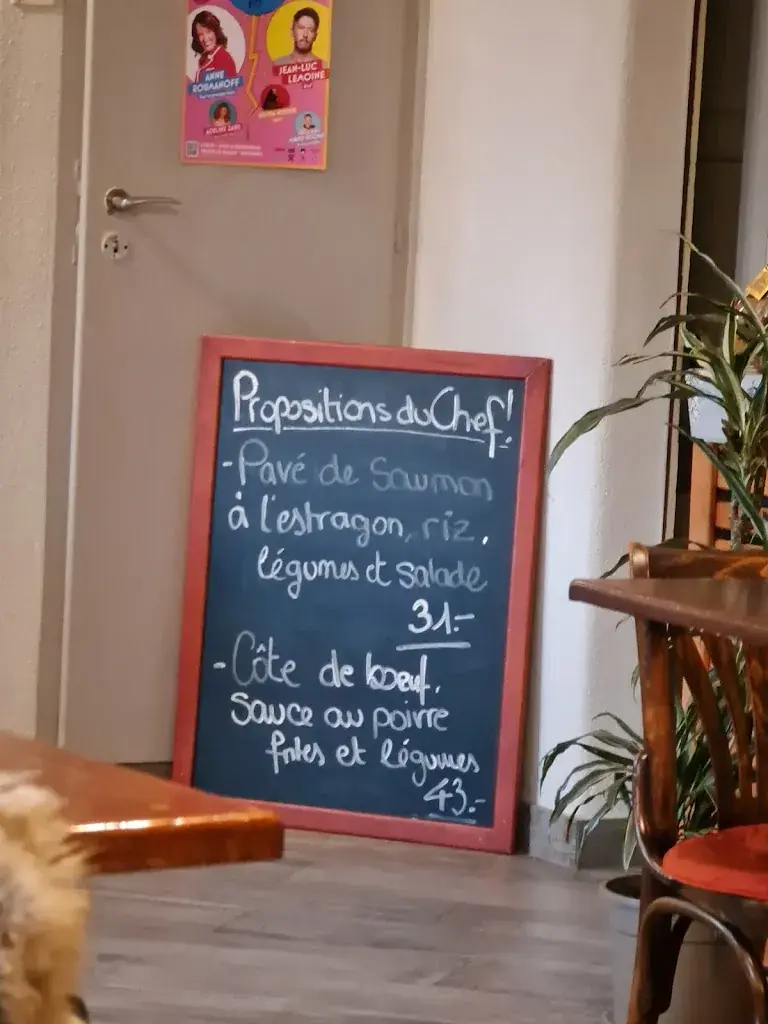 ANNE
ROUMANOFF
JEAN-LUC
LEMOINE
Propositions du Chef!
- Pavé de Saumon
à l'estragon, riz,
légumes et salade
31.-
- Côte de boeuf,
Sauce au poivre
frites et légumes
43.-